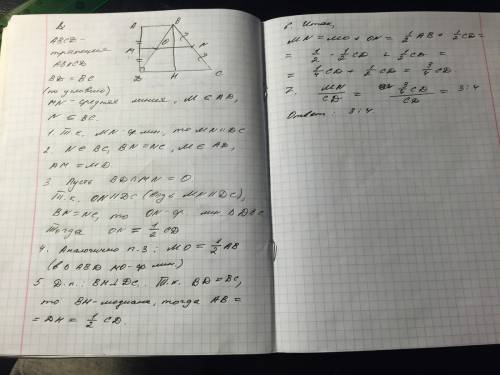 Дано
ABCD -
трапеция
AB ∥ CD
BD = BC
(по условию)
MN - средняя линия, M ∈ AD,
N ∈ BC.
1. Т.к. MN - ср. лин., то MN ∥ DC
2. N ∈ BC, BN = NC, M ∈ AD,
AM = MD
3. Пусть BD ∩ MN = O.
Т.к. ON ∥ DC (ведь MN ∥ DC),
BN = NC, то ON - ср. лин. Δ DBC
Тогда ON = 1/2 CD
4. Аналогично п.3: MO = 1/2 AB
(в Δ ABD MO - ср. лин.)
5. Д.п.: BH ⊥ DC. Т.к. BD = BC,
то BH - медиана, тогда AB =
= DH = 1/2 CD.
A B
M O N
D H C
6. Итак,
MN = MO + ON = 1/2 AB + 1/2 CD =
= 1/2 · 1/2 CD + 1/2 CD =
= 1/4 CD + 1/2 CD = 3/4 CD.
7. MN/CD = 3/4 CD / CD = 3:4
Ответ: 3:4